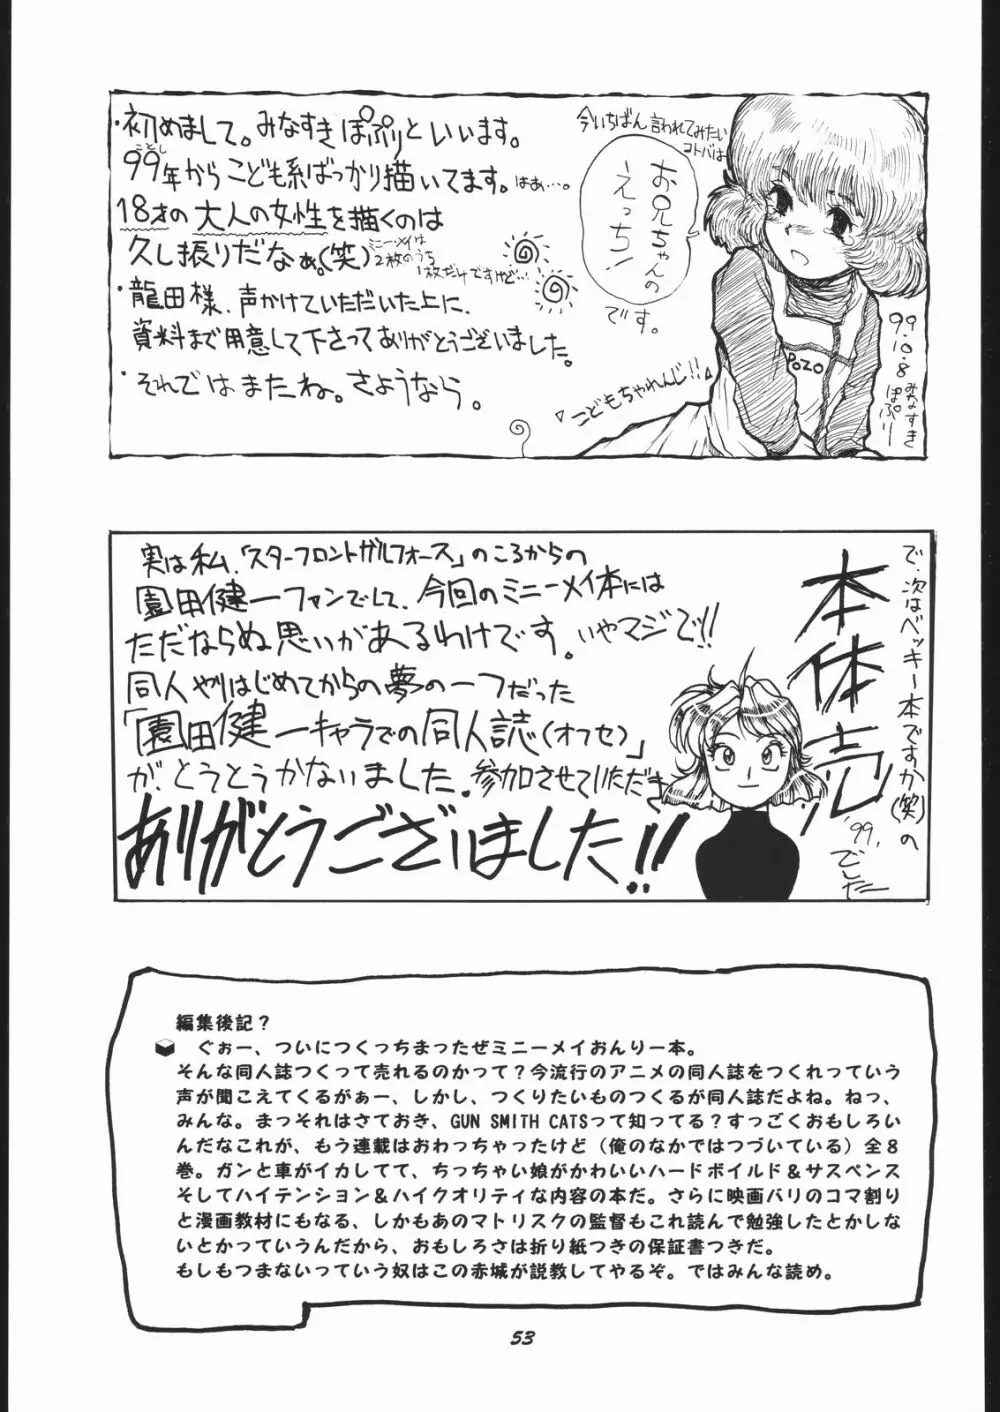 ・初めまして。みなすきぽぷりといいます。
99年からこども系ばっかり描いてます。はぁ…。
ことし
18才の大人の女性を描くのは
久し振りだなぁ。(笑)
ミニーメイは
2枚のうち
1枚だけですけど…!
・龍田様、声かけていただいた上に、
資料まで用意して下さってありがとうございました。
・それではまたね。さようなら。
今いちばん言われてみたい
コトバは
お兄ちゃんの
えっち!
です。
こどもちゃれんじ!!
POZO
99.10.8 みなすき
ぽぷり
実は私、「スターフロントガルフォース」のころからの
園田健一ファンでして、今回のミニーメイ本には
ただならぬ思いがあるわけです。いやマジで!!
同人やりはじめてからの夢の一つだった
「園田健一キャラでの同人誌(オフセ)」
が、とうとうかないました。参加させていただき
ありがとうございました!!
で、次はベッキー本ですか(笑)の
本体売
'99,
でした
編集後記?
ぐぉー、ついにつくっちまったぜミニーメイおんりー本。
そんな同人誌つくって売れるのかって?今流行のアニメの同人誌をつくれっていう
声が聞こえてくるがぁー、しかし、つくりたいものつくるが同人誌だよね。ねっ、
みんな。まっそれはさておき、GUN SMITH CATSって知ってる?すっごくおもしろい
んだなこれが、もう連載はおわっちゃったけど(俺のなかではつづいている)全8
巻。ガンと車がイカしてて、ちっちゃい娘がかわいいハードボイルド&サスペンス
そしてハイテンション&ハイクオリティな内容の本だ。さらに映画バリのコマ割り
と漫画教材にもなる、しかもあのマトリスクの監督もこれ読んで勉強したとかしな
いとかっていうんだから、おもしろさは折り紙つきの保証書つきだ。
もしもつまないっていう奴はこの赤城が説教してやるぞ。ではみんな読め。
53